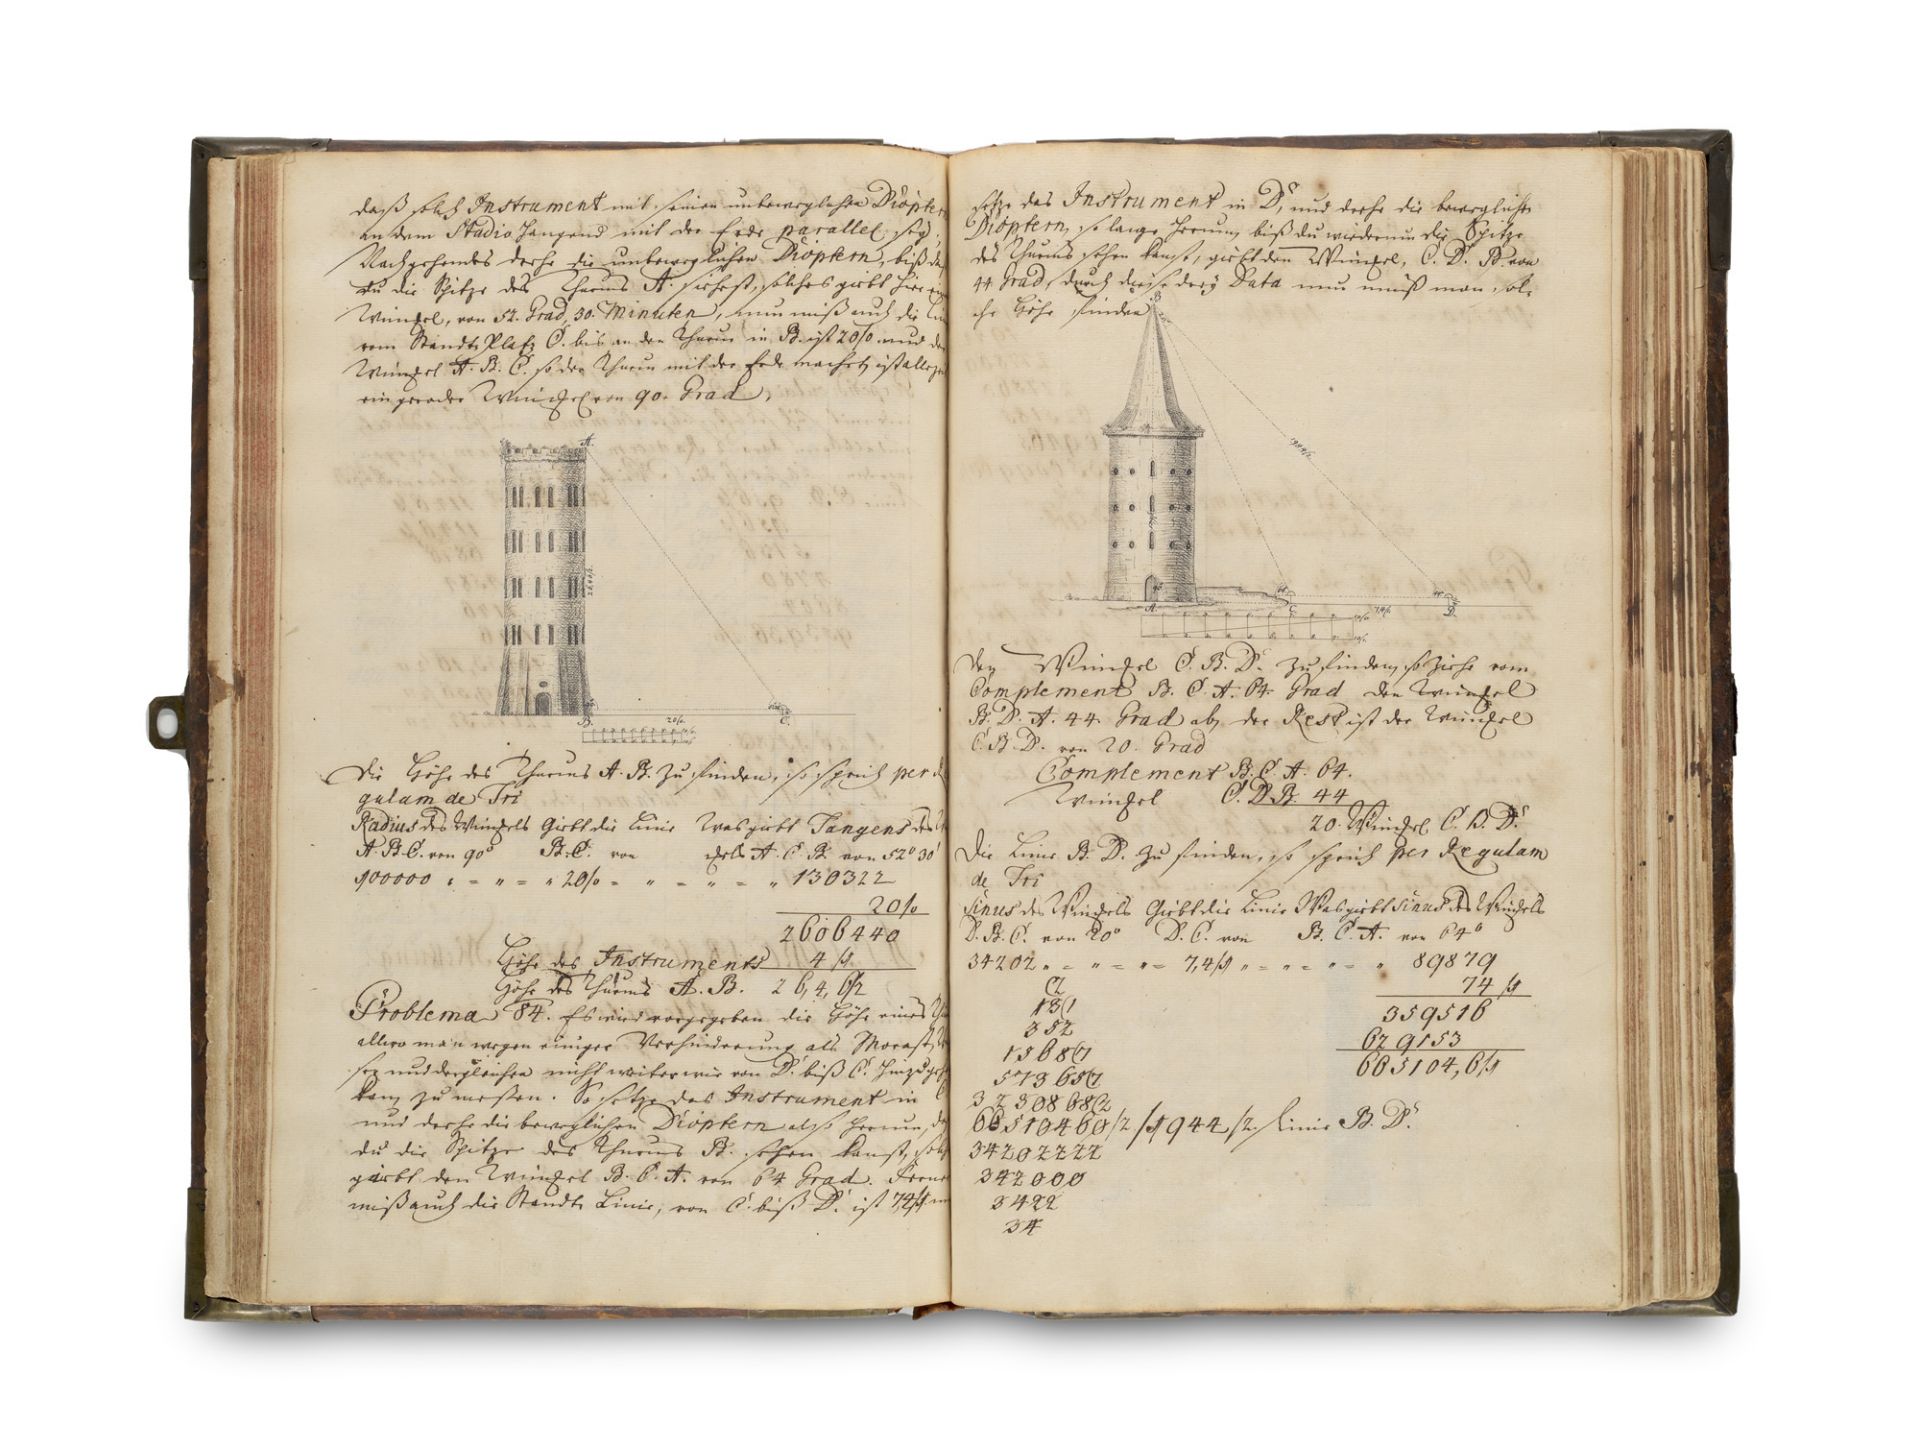 daß solch Instrument mit seinen unbeweglichen Dioptern
an dem Stadio hangend mit der Erde parallel sey,
Nachgehendes drehe die unbeweglichen Dioptern, biß daß
du die Spitze des Thurns A. siehest, solches giebt hier ein
Winckel, von 52. Grad, 30. Minuten, nun miß auch die Lin
vom Standt Platz C. bis an den Thurn in B. ist 20/0 und der
Winckel A. B. C. so der Thurn mit der Erde machet, ist allezeit
ein gerader Winckel von 90. Grad,
A.
B. 20/0 C.
Die Höhe des Thurns A. B. zu finden, so sprich per
gulam de Tri
Radius des Winckels Giebt die Linie Was giebt Tangens des
A. B. C. von 90° B. C. von ckels A. C. B. von 52° 30'
100000 20/0 130322
20/0
2606440
Höhe des Instruments 4
Höhe des Thurns A. B. 26,4,6/2
Problema 84. Es wird vorgegeben die Höhe eines
allwo man wegen einiger Verhinderung als Morast,
und dergleichen nicht weiter wie von D. biß C. hinzu
kan, zu messen. So setze das Instrument in C
und drehe die beweglichen Dioptern also herum, daß
du die Spitze des Thurns B. sehen kanst, solches
giebt den Winckel B. C. A. von 64 Grad. Ferner
miß auch die Standt Linie, von C. biß D. ist 7,4
setze das Instrument in D, und drehe die bewegliche
Dioptern, so lange herum, biß du wiederum die Spitze
des Thurns sehen kanst, giebt den Winckel, C. D. B. von
44 Grad, durch diese drey Data nun muß man sol-
che Höhe finden
B.
A. C. D.
Den Winckel C. B. D. zu finden, so ziehe vom
Complement B. C. A. 64. Grad den Winckel
B. D. A. 44. Grad ab, der Rest ist der Winckel
C. B. D. von 20. Grad
Complement B. C. A. 64.
Winckel C. D. B. 44
20. Winckel C. B. D.
Die Linie B. D. zu finden, so sprich per Regulam
de Tri
Sinus des Winckels Giebt die Linie Was giebt Sinus des Winckels
D. B. C. von 20° D. C. von B. C. A. von 64°
34202 7,4 89879
74
359516
629153
665104,6
352
66510460/2 1944/2. Linie B. D.
34202222
342000
3422
34